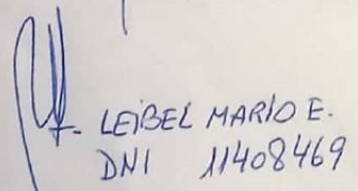 LEIBEL MARIO E.
DNI 11408469